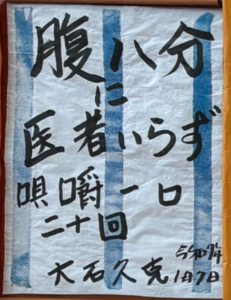 腹八分
に
医者いらず
唄嚼一口
二十回
大石久克
令和7年
1月7日